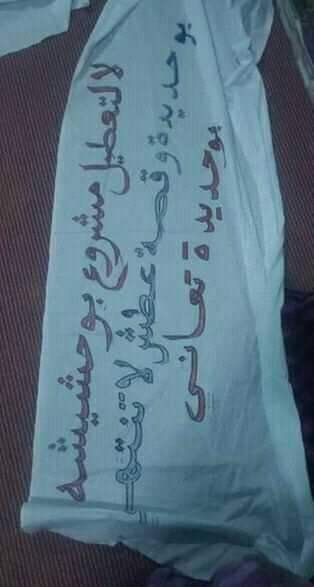 لا لتعطيل مشروع بوحشيشة
بوحديدة وقصة عطش لا تنتهي
بوحديدة تعاني